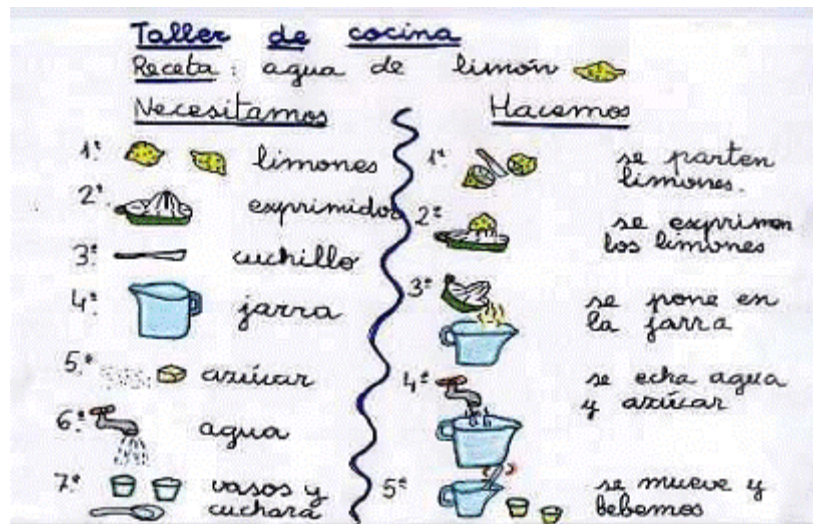 Taller de cocina
Receta: agua de limón
Necesitamos
1º. limones
2º. exprimidor
3º cuchillo
4º. jarra
5.º azúcar
6º. agua
7º. vasos y
cuchara
Hacemos
1º se parten
limones.
2º se exprimen
los limones
3º se pone en
la jarra
4º se echa agua
y azúcar
5º se mueve y
bebemos